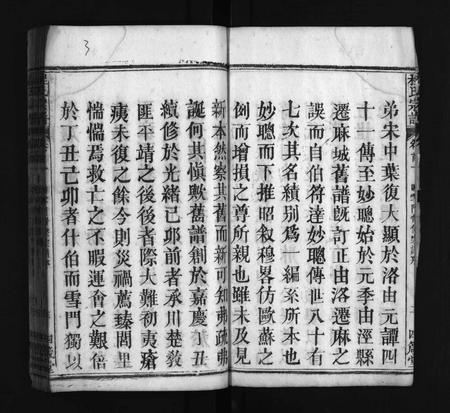 3
弟宋中葉復大顯於洛由元譚四
十一傳至妙聰始於元季由涇縣
遷麻城舊譜旣訂正由洛遷麻之
誤而自伯符達妙聰傳世八十有
七次其名績別爲一編系所本也
妙聰而下推昭叙穆畧仿歐蘇之
例而增損之尊所親也雖未及見
新本然察其舊而新可知弗疏弗
誕何其愼歟舊譜創於嘉慶辛丑
續修於光緒己卯前者承川楚敎
匪平靖之後後者際大難初夷瘡
痍未復之餘今則災禍薦臻閭里
惴惴焉救亡之不暇運會之艱倍
於丁丑己卯者什伯而雪門獨以